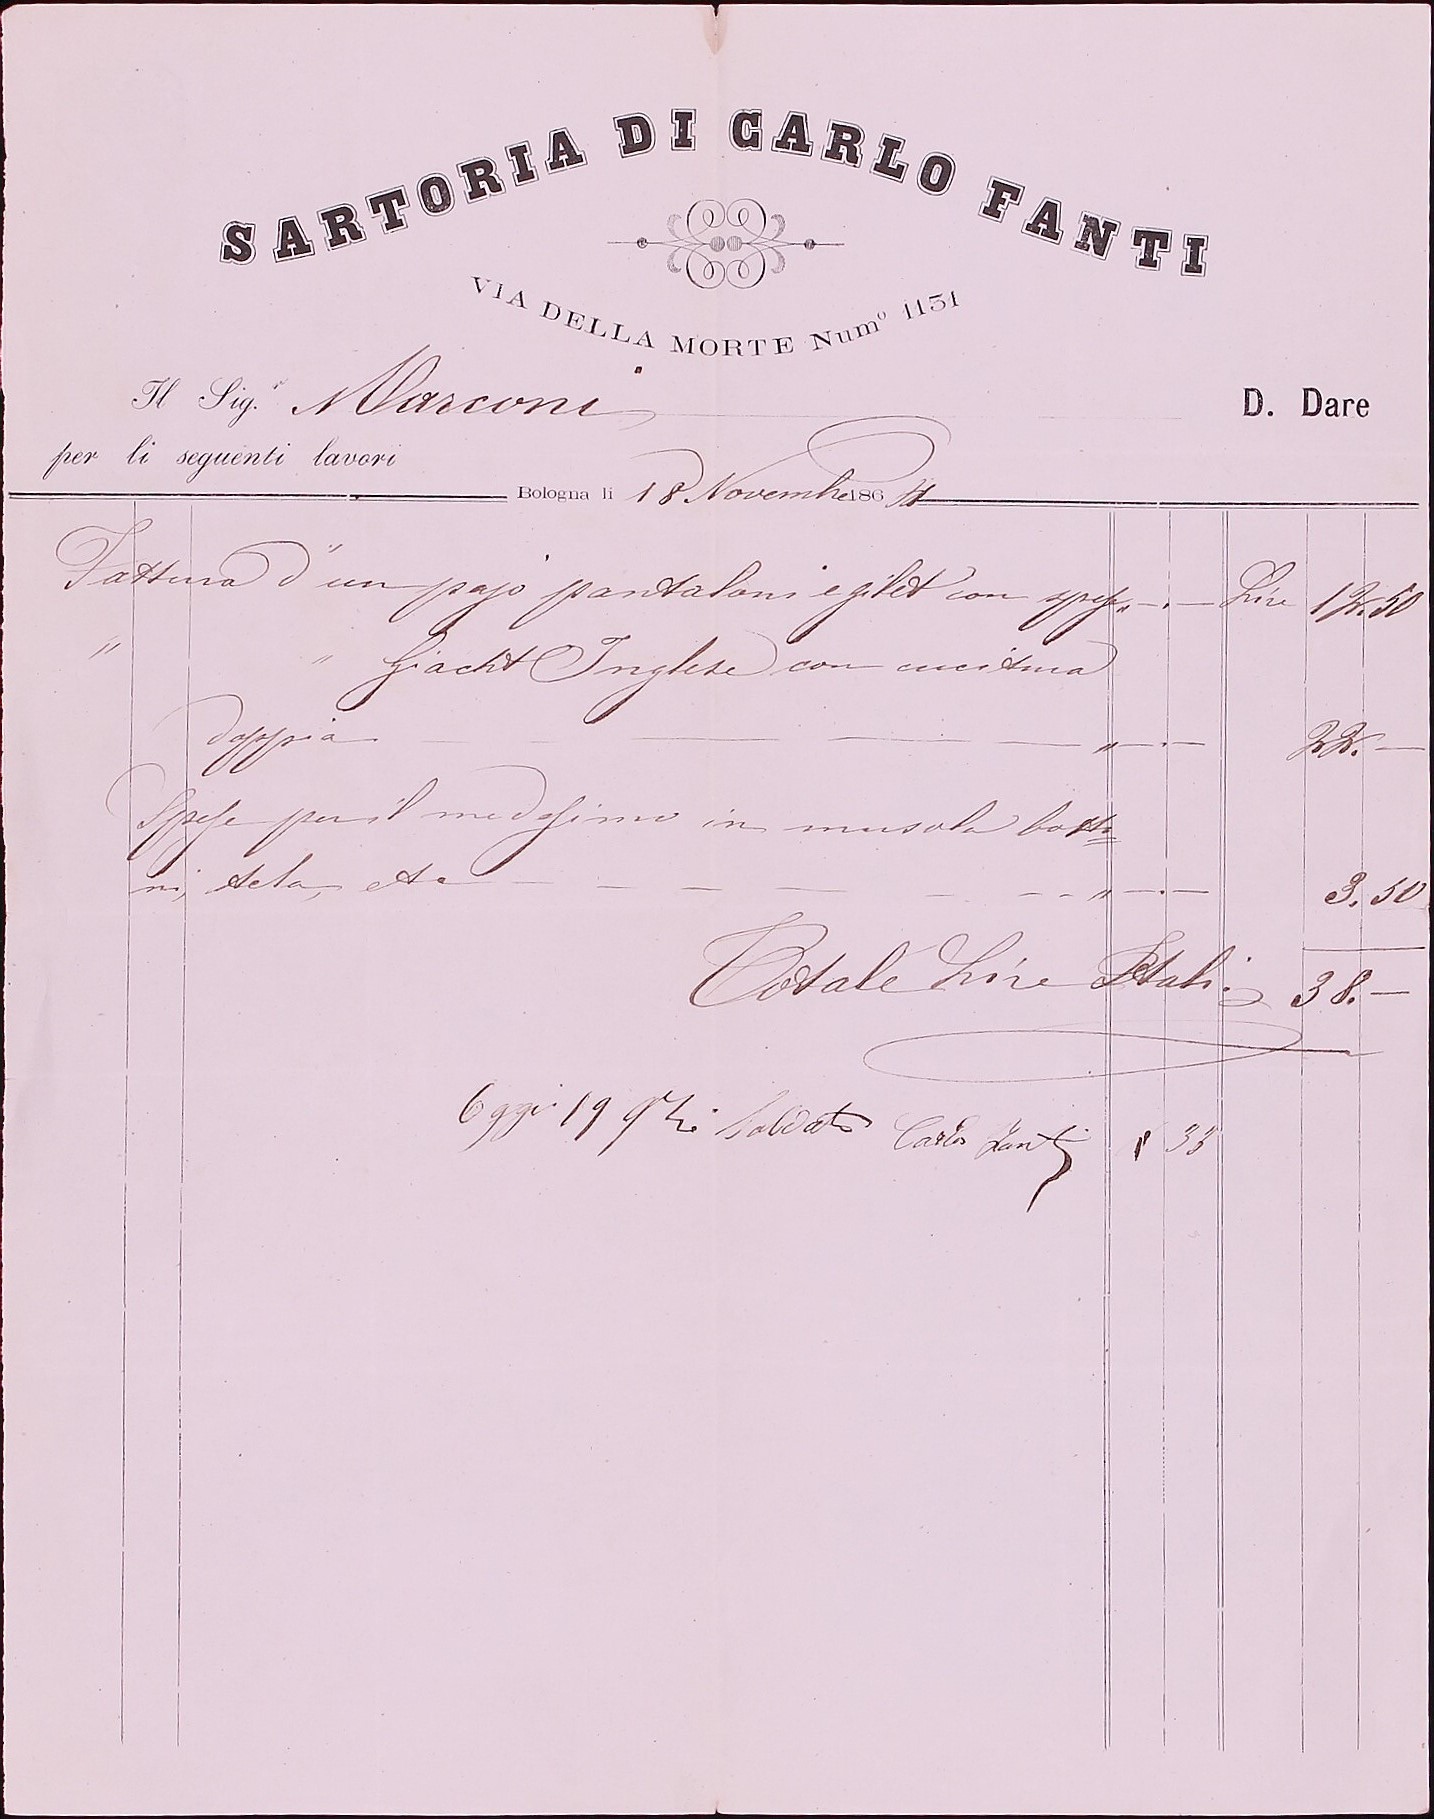 SARTORIA DI CARLO FANTI
VIA DELLA MORTE Numº 1131
Il Sig.r Marconi D. Dare
per li seguenti lavori
Bologna li 18 Novembre 186
Fattura d'un pajo pantaloni e gilet con spese „ — . — Lire 12.50
„ „ Giacht Inglese con cucitura
doppia „ — . — 22. —
Spese per il medesimo in musola botto=
ni, tela, etc „ — . — 3.50
Totale Lire Itali. 38. —
Oggi 19 9bre Saldato Carlo Fanti 33